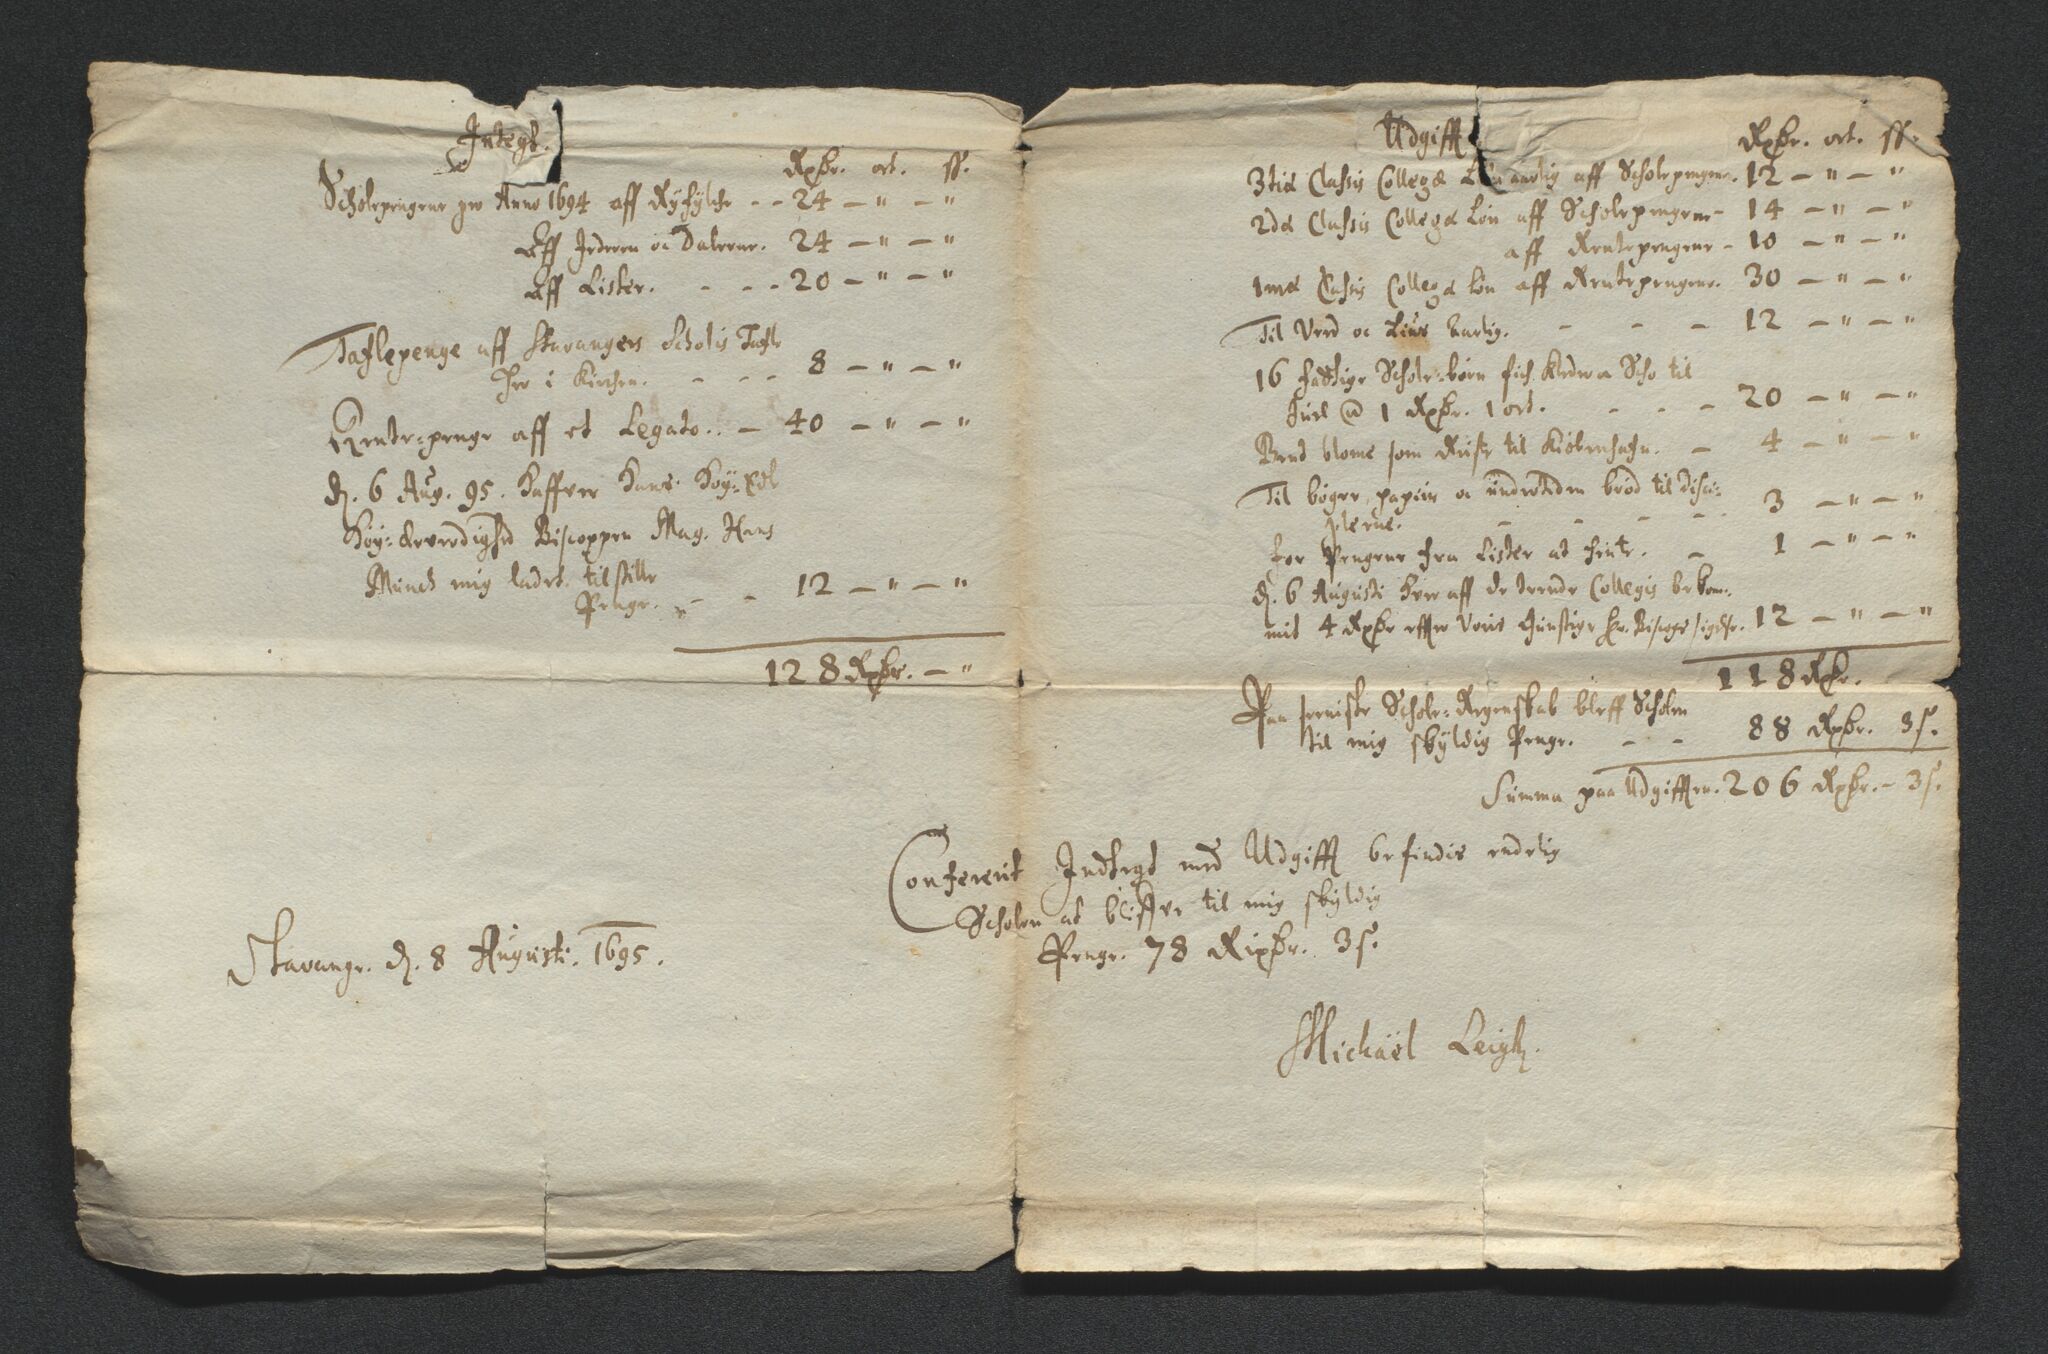 Integt.
Rixdr. ort. ss.
Scholepengene pro Anno 1694 aff Ryfylche - - 24 — " — "
Aff Jederen oc Dalerne. 24 — " — "
Aff Lister. - - - 20 — " — "
Taflepenge aff Stavangers Scholis Tafle
her i Kirchen. - - - 8 — " — "
Rente-penge aff et Legato. . — 40 — " — "
d. 6 Aug. 95. haffver hans Høy-Edl
Høy-Ærverdighed Biscoppen Mag. Hans
Munch mig ladet tilstille
Penge. - - 12 — " — "
128 Rixdr. — "
Stavanger. d. 8 Augusti. 1695.
Udgifft
Rixdr. ort. ss.
3tiæ Classis Collegæ Løn aarlig aff Scholepengene. 12 — " — "
2dæ Classis Collegæ Løn aff Scholepengene - 14 — " — "
aff Rentepengene - 10 — " — "
1mæ Classis Collegæ Løn aff Rentepengene. 30 — " — "
Til Ved oc Lius aarlig. - - - 12 — " — "
16 fattige Schole-børn fich Klæder oc Scho til
Juel @ 1 Rixdr. 1 ort. - - - 20 — " — "
Bend Blome som Reiste til Kiøbenhafn. — 4 — " — "
Til bøger, papiir oc undertiden brød til Disci-
plerne. - - - - 3 — " — "
for Pengene fra Lister at hente. - 1 — " — "
d. 6 Augusti hver aff de trende Collegis bekom-
mit 4 Rixdr effter Voris Gunstige Hr. Biscops sigelse. 12 — " — "
118 Rdr.
Paa seeniste Schole-Regenskab bleff Scholen
til mig skyldig Penge. - - 88 Rixdr. 3 s.
Summa paa Udgifften. 206 Rixdr. - 3 s.
Conferert Indtegt med Udgifft befindis endelig
Scholen at bliffve til mig skyldig
Penge. 78 Rixdr. 3 s.
Michäel Leigh.